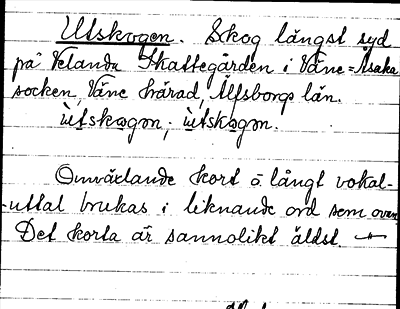 Utskogen. Skog längst syd
på Velanda Skattegården i Väne-Åsaka
socken, Väne härad, Älfsborgs län.
ùtskogǝn; ùtskogǝn.
Omväxlande kort o. långt vokal-
-uttal brukas i liknande ord som ovan.
Det korta är sannolikt äldst.